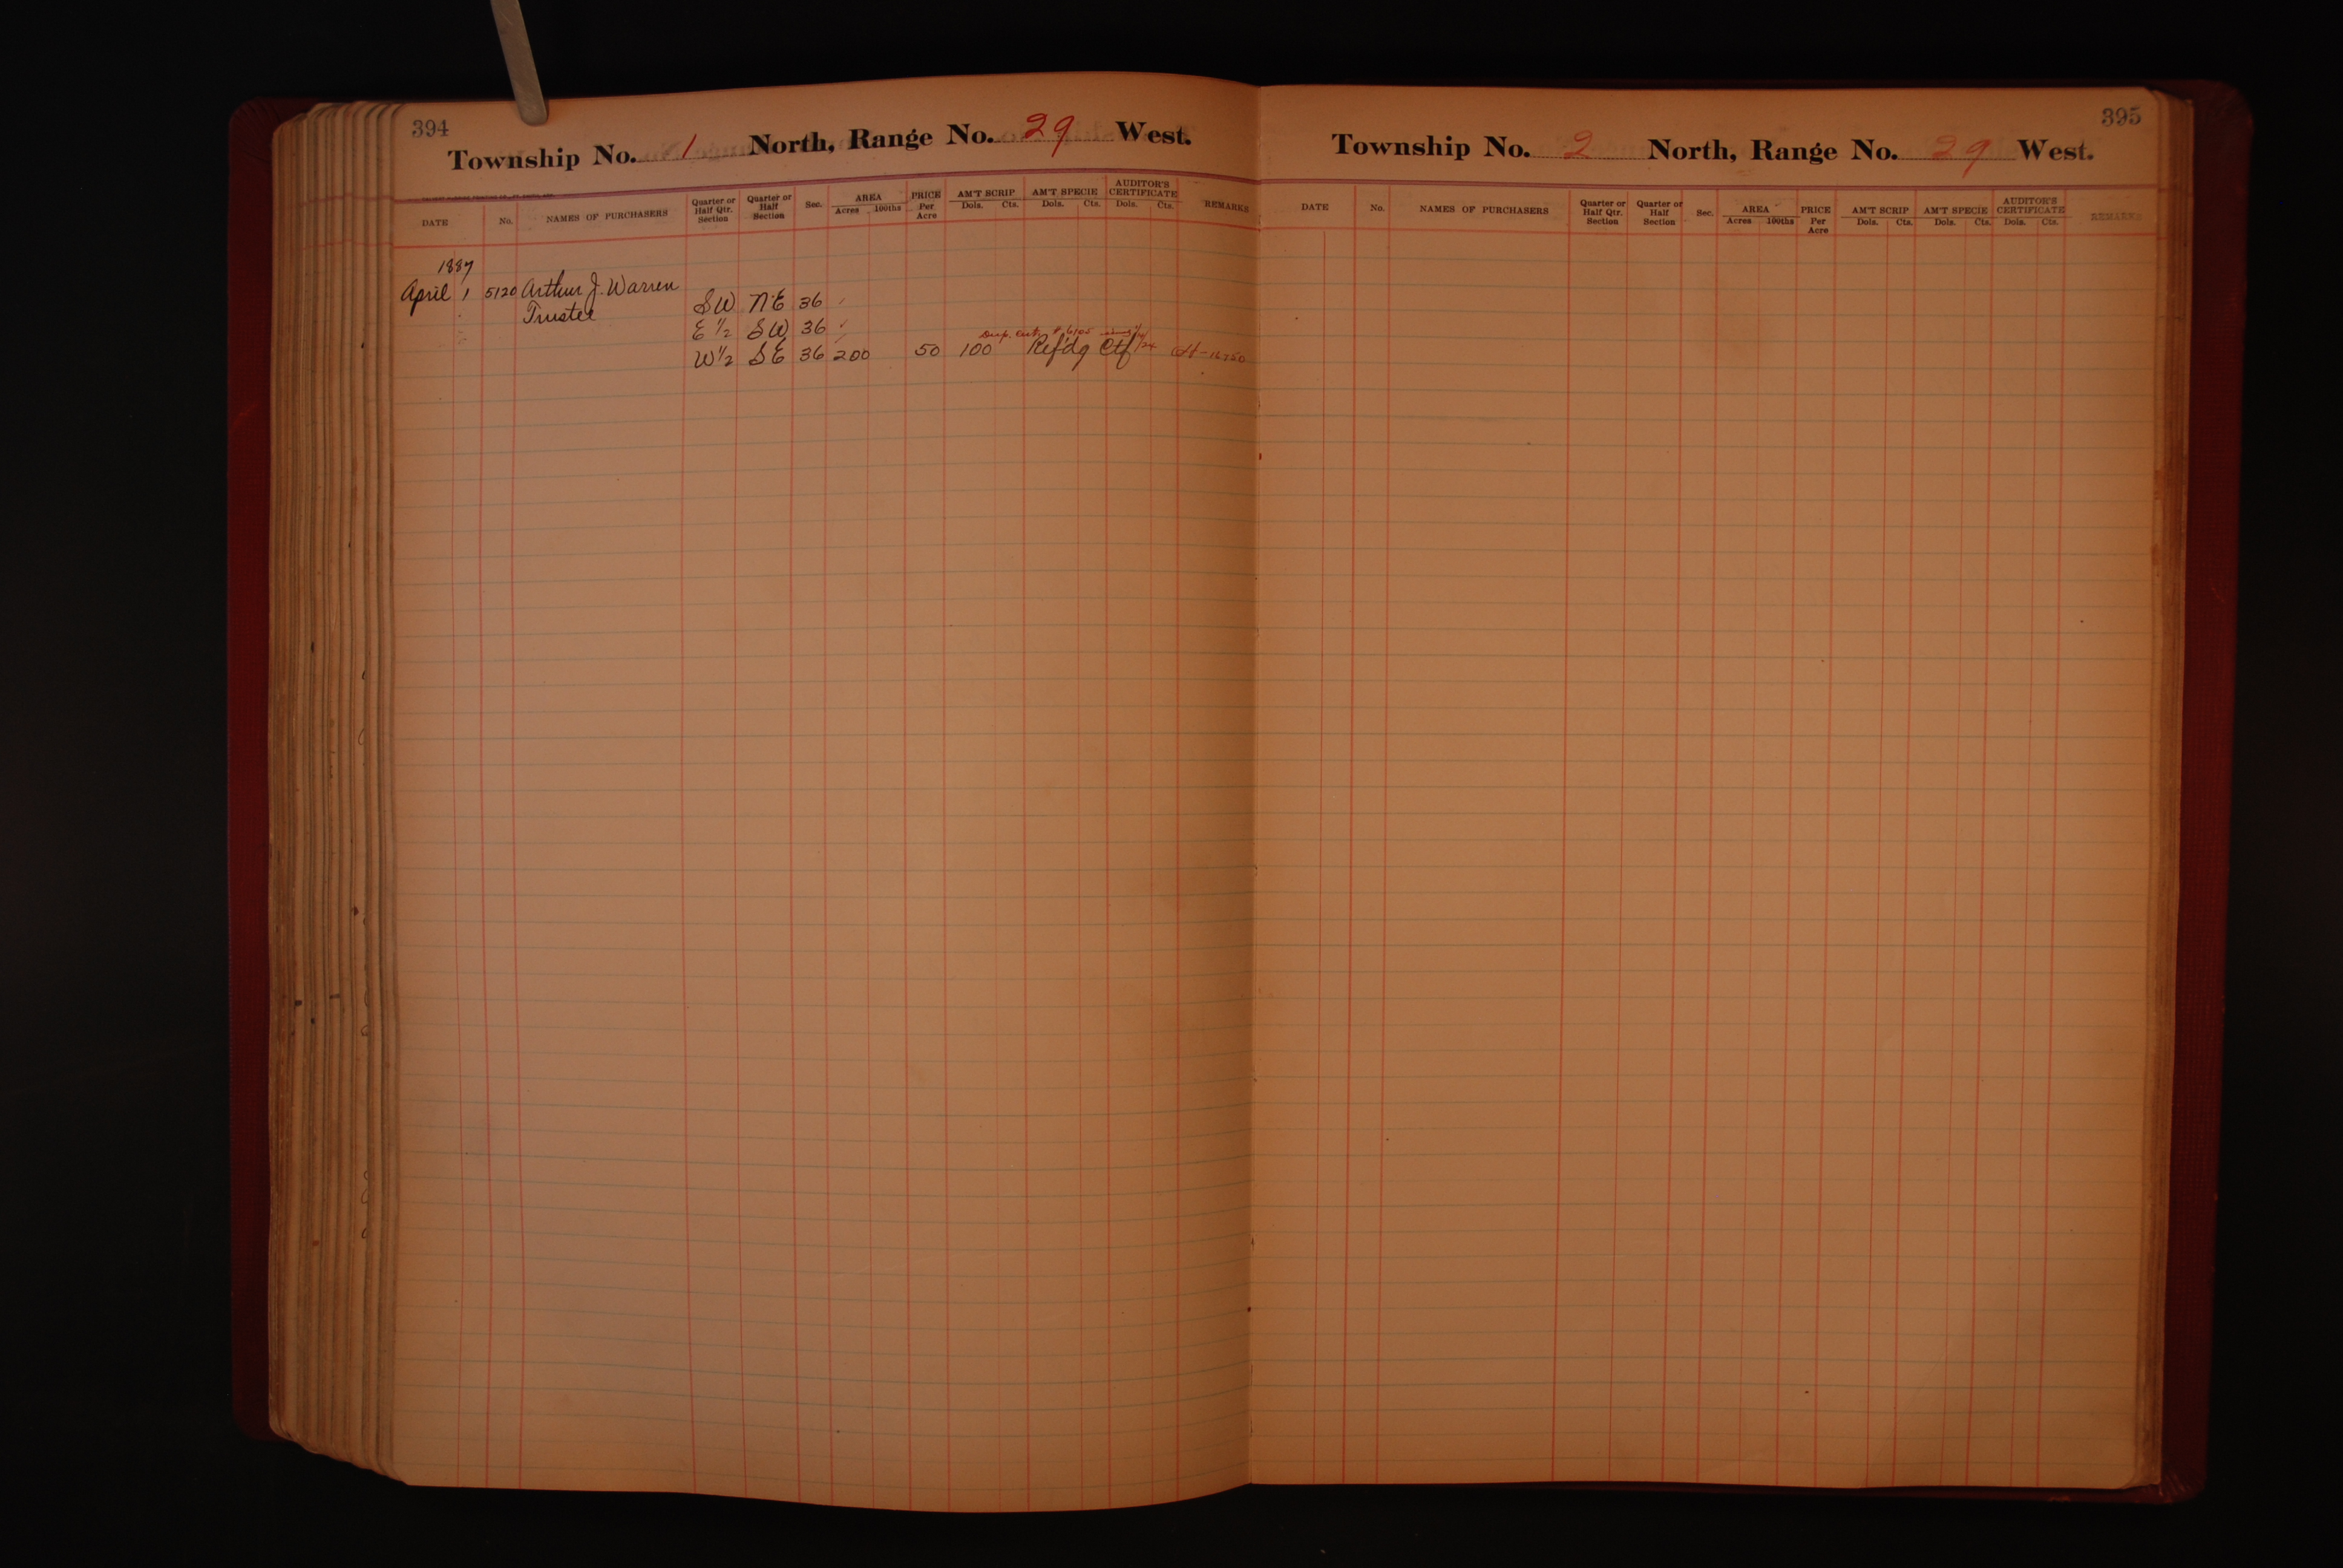 394
Township No. 1 North, Range No. 29 West.
DATE No. NAMES OF PURCHASERS Quarter or Half Qtr. Section Quarter or Half Section Sec. AREA Acres 100ths PRICE Per Acre AM'T SCRIP Dols. Cts. AM'T SPECIE Dols. Cts. AUDITOR'S CERTIFICATE Dols. Cts. REMARKS
1887
April 1 5120 Arthur J. Warren
Trustee SW NE 36
E 1/2 SW 36
W 1/2 SE 36 200 50 100 Ref'dg Ctf
395
Township No. 2 North, Range No. 29 West.
DATE No. NAMES OF PURCHASERS Quarter or Half Qtr. Section Quarter or Half Section Sec. AREA Acres 100ths PRICE Per Acre AM'T SCRIP Dols. Cts. AM'T SPECIE Dols. Cts. AUDITOR'S CERTIFICATE Dols. Cts. REMARKS